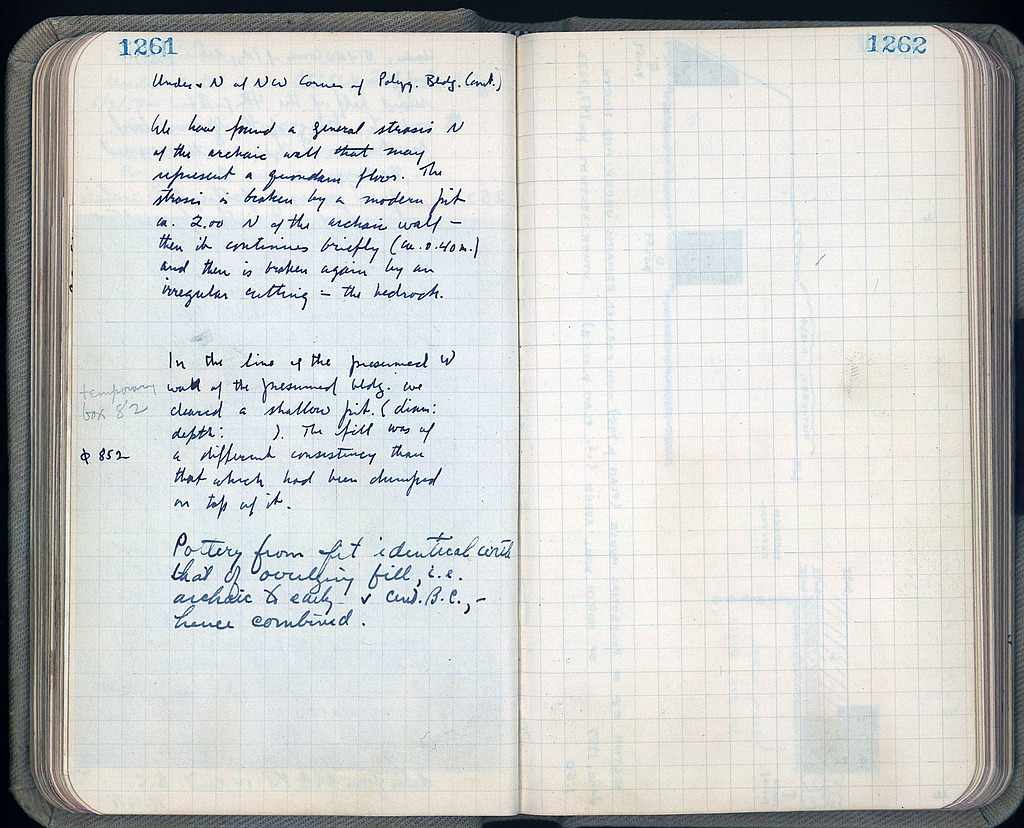 1261
1262
Under & N of NW Corner of Polyg. Bldg. (cont.)
We have found a general strosis N
of the archaic wall that may
represent a quondam floor. The
strosis is broken by a modern pit
ca. 2.00 N of the archaic wall –
then it continues briefly (ca. 0.40 m.)
and then is broken again by an
irregular cutting – the bedrock.
In the line of the presumed W
wall of the presumed bldg. we
cleared a shallow pit. (diam:
depth: ). The fill was of
a different consistency than
that which had been dumped
on top of it.
temporary
box 82
φ 852
Pottery from pit identical with
that of overlying fill, i.e.
archaic & early v cent. B.C., –
hence combined.